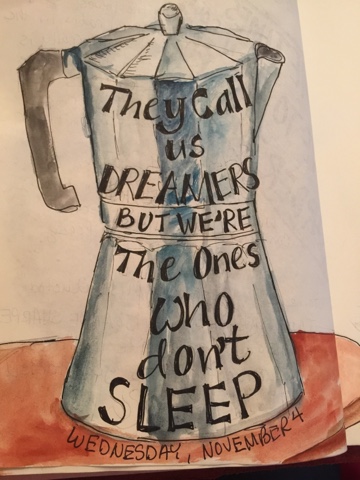 They Call
us
DREAMERS
BUT WE'RE
The Ones
Who
don't
SLEEP
WEDNESDAY, NOVEMBER 4